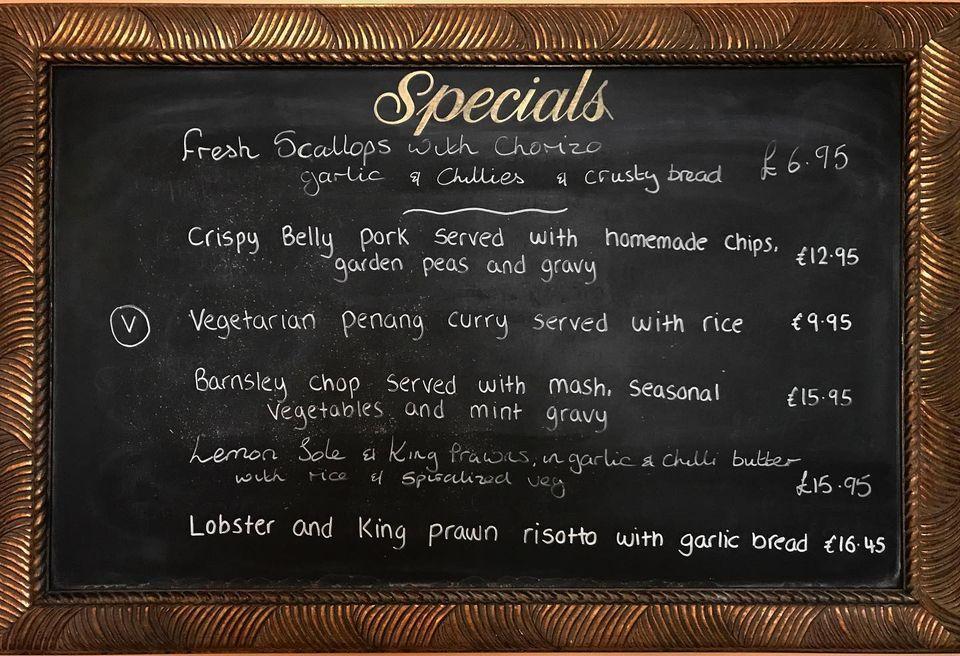 Specials
Fresh Scallops with Chorizo
garlic & Chillies & crusty bread £6.95
Crispy Belly pork served with homemade chips,
garden peas and gravy £12.95
V Vegetarian penang curry served with rice £9.95
Barnsley chop served with mash, seasonal
vegetables and mint gravy £15.95
Lemon Sole & King Prawns, in garlic & chilli butter
with rice & spiralized veg £15.95
Lobster and King prawn risotto with garlic bread £16.45